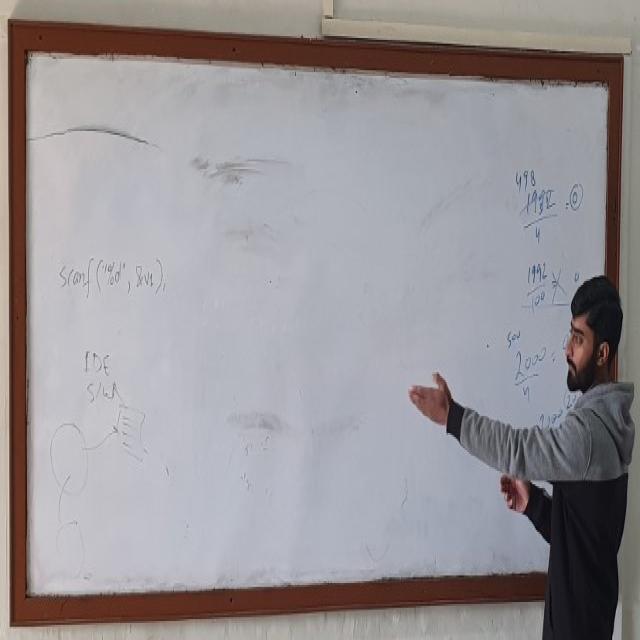 scanf("%d", &v1);
IDE
S/W
498
1992
4
1992
100
500
2000
4